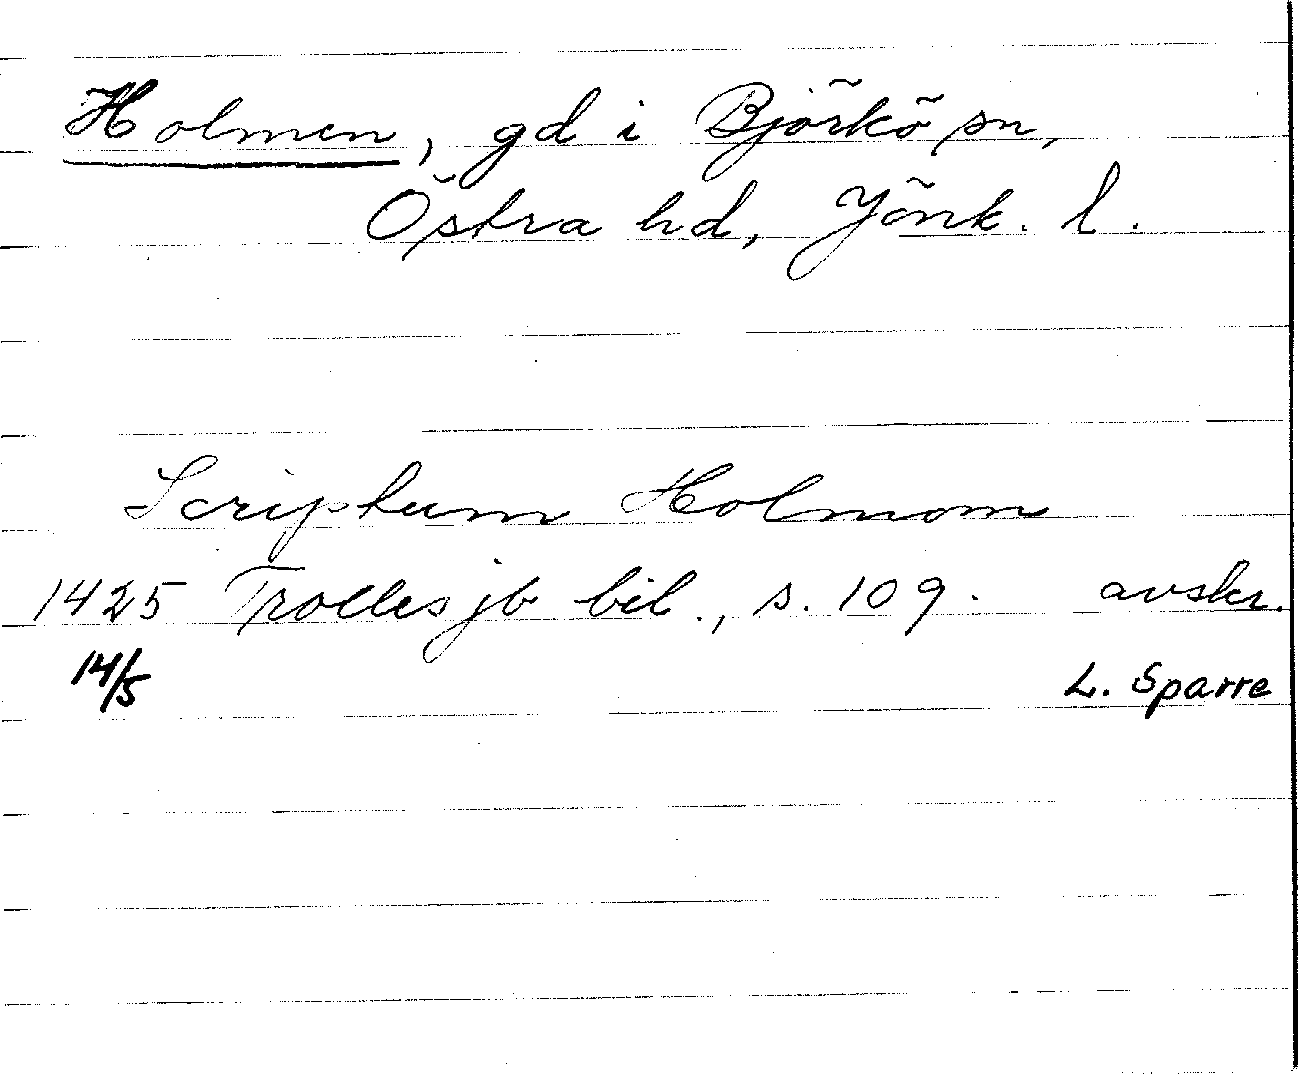 Holmen, gd i Björkö sn,
Östra hd, Jönk. l.
Scriptum Holmom
1425 Trolles jb bil., s. 109. avskr.
14/5 L. Sparre